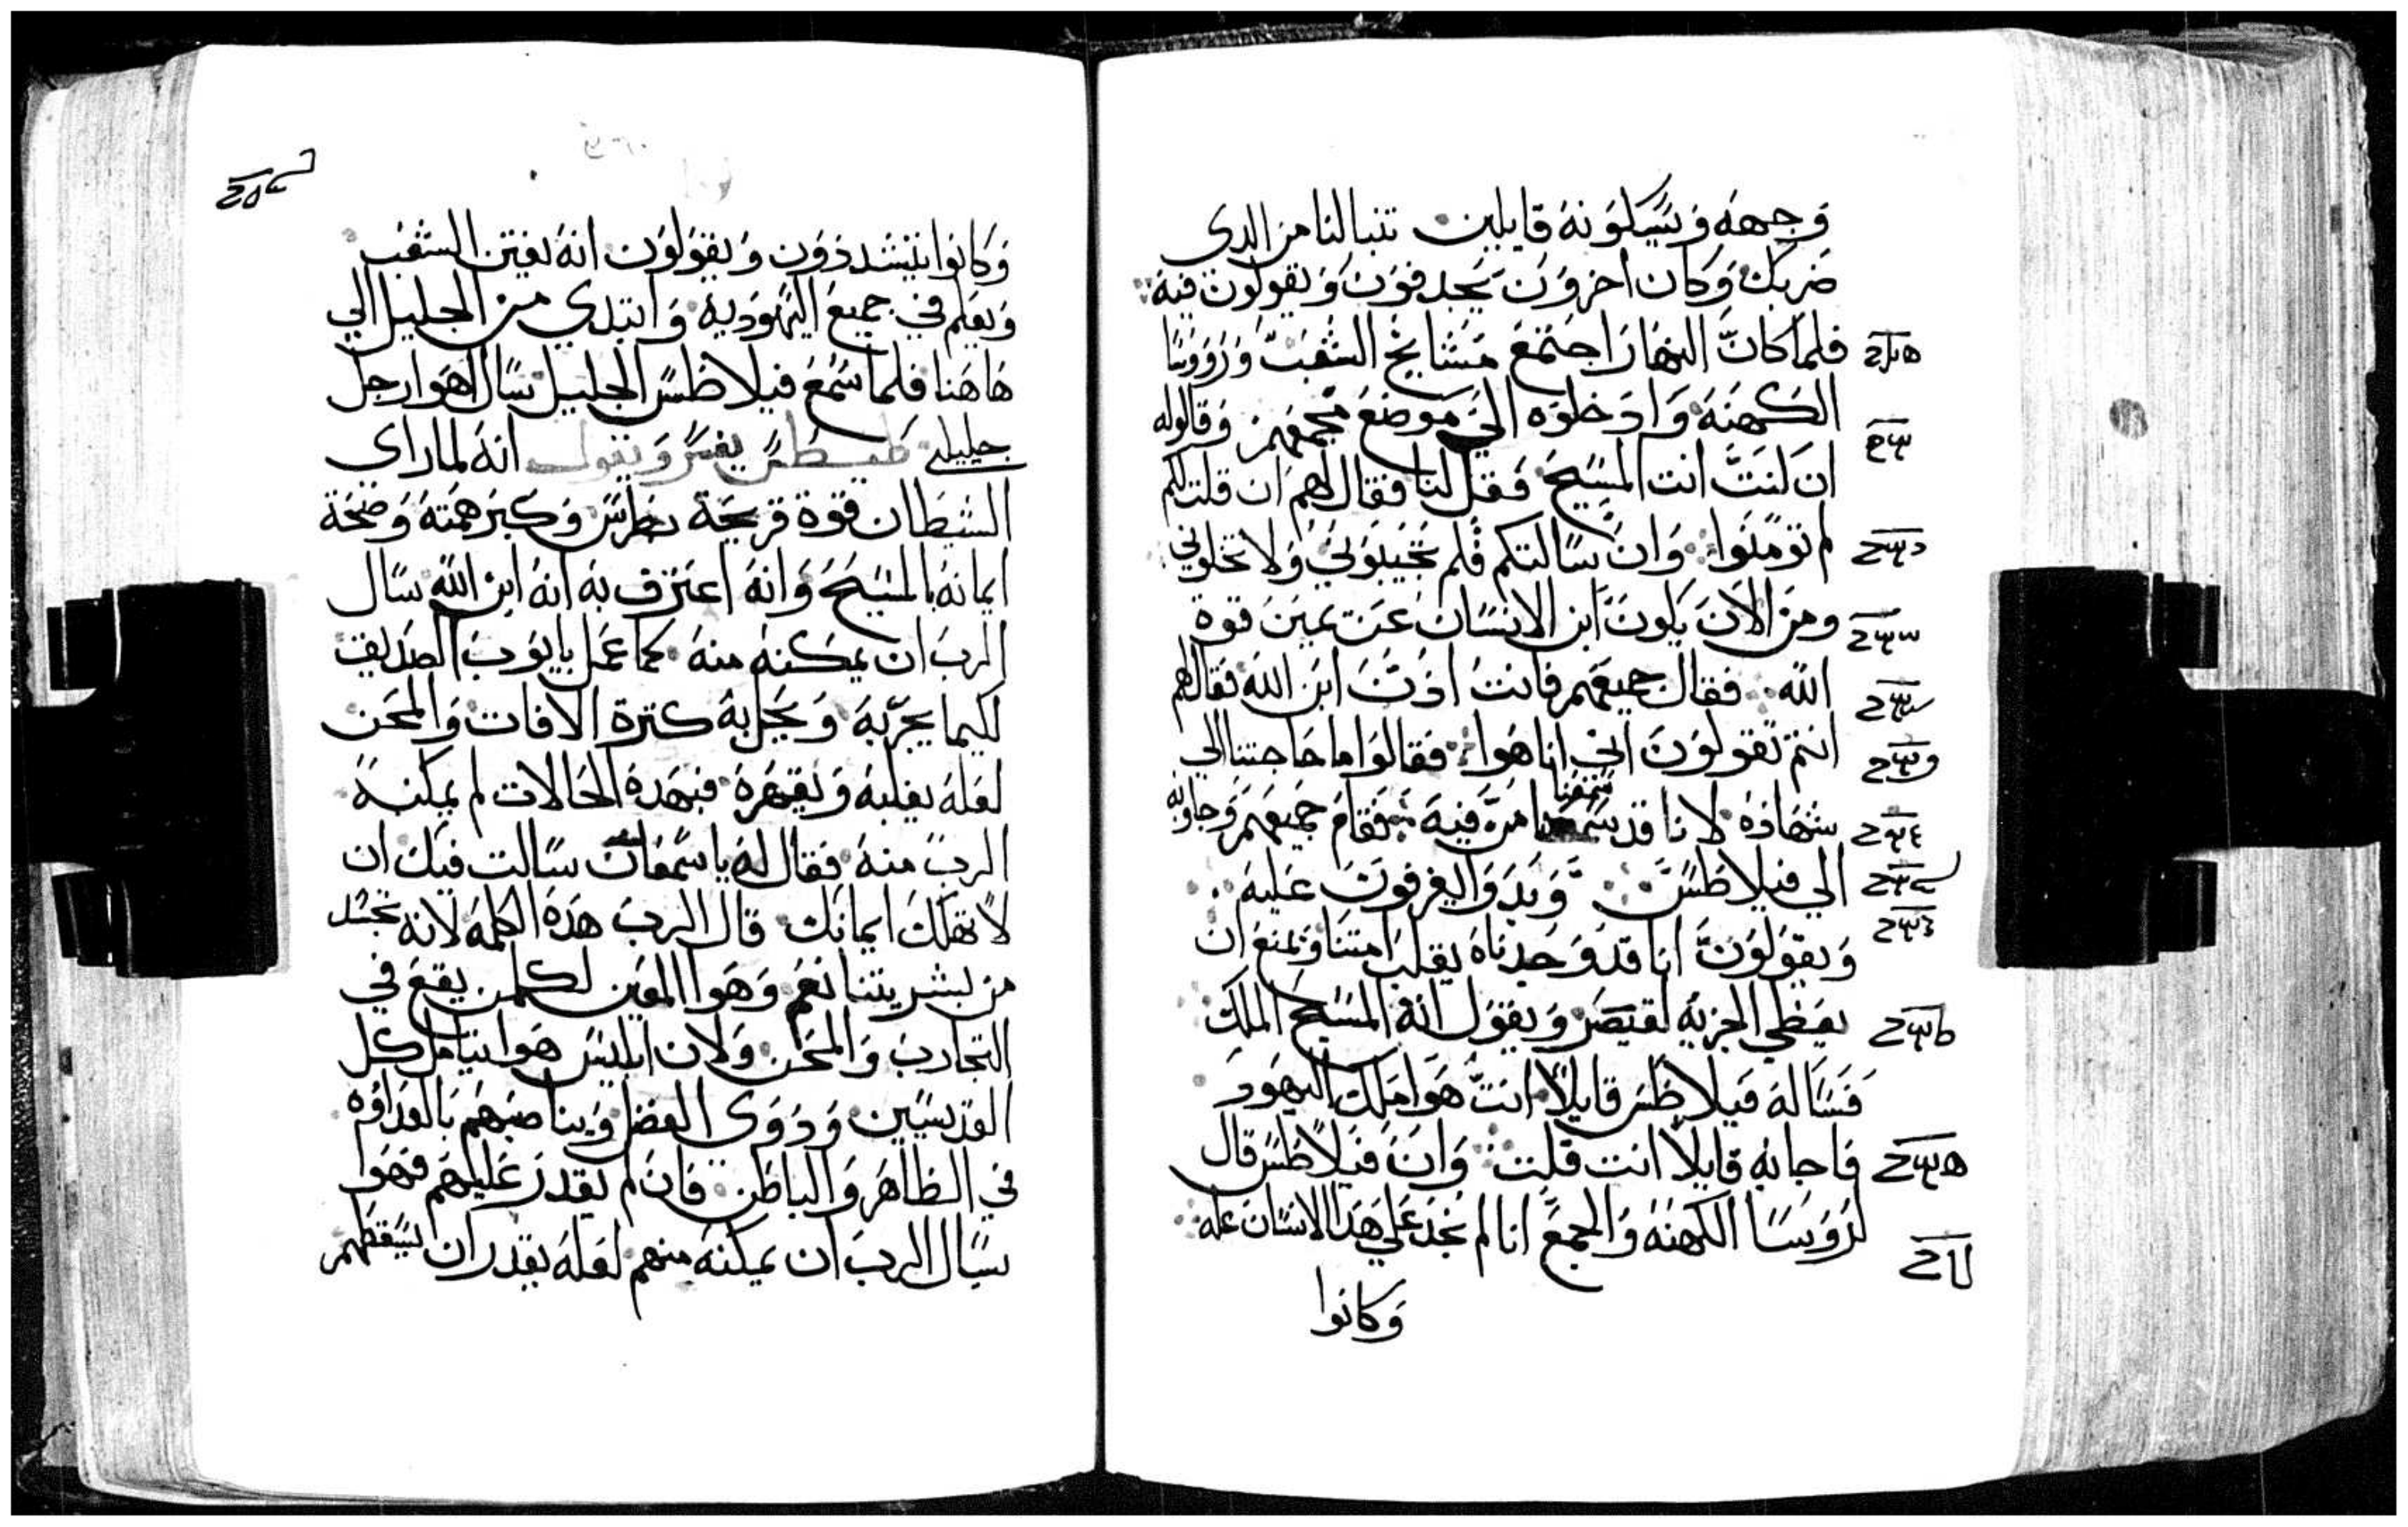 وجهه ويسيلونه قايلين تنبا لنا من الدى
ضربك وكان اخرون يجدفون ويقولون فيه
فلما كان النهار اجتمع مشايخ الشعب ورووسا
الكهنه وادخلوه الي موضع مجمعهم وقالوا له
ان كنت انت المسيح فقل لنا فقال لهم ان قلت لكم
لم تومنوا وان سالتكم فلم تجيبوني ولا تخلوني
ومن الان يكون ابن الانسان عن يمين قوة
الله فقال جميعهم فانت ادن ابن الله فقال لهم
انتم تقولون اني انا هوا فقالوا ما حاجتنا الي
شهاده لانا قد سمعنا من فيه فقام جميعهم وجاوبه
الي فيلاطس وبدوا يقرفون عليه
ويقولون انا قد وجدناه يقلب امتنا ويمنع ان
يعطي الجزيه لقيصر ويقول انه المسيح الملك
فساله فيلاطس قايلا انت هوا ملك اليهود
فاجابه قايلا انت قلت وان فيلاطس قال
لرووسا الكهنه والجمع انا لم نجد علي هدا الانسان عله
وكانوا
وكانوا يتشددون ويقولون انه يفتن الشعب
ويعلم في جميع اليهوديه وابتدي من الجليل الي
هاهنا فلما سمع فيلاطس الجليل سال اهوا رجل
جليلي طيطس يفسر ويقول انه لما راى
الشيطان قوة قريحة بطرس وكبر همته وصحة
ايمانه بالمسيح وانه اعترف به انه ابن الله سال
الرب ان يمكنه منه كما عمل بايوب الصديق
لكيما يجربه ويجلب به كترة الافات والمحن
لعله يغلبه ويقهره فبهده الحالات لم يمكنه
الرب منه فقال له يا سمعان سالت فيك ان
لا تهلك ايمانك قال الرب هده الكلمه لانه تجسد
من بشريتنا نعم وهوا المعين لكلمن يقع في
التجارب والمحن ولان ابليس هوا يتامل كل
القديسين ودوى الفضل ويناصبهم بالعداوه
في الظاهر والباطن فان لم يقدر عليهم فهوا
يسال الرب ان يمكنه منهم لعله يقدر ان يسقطهم